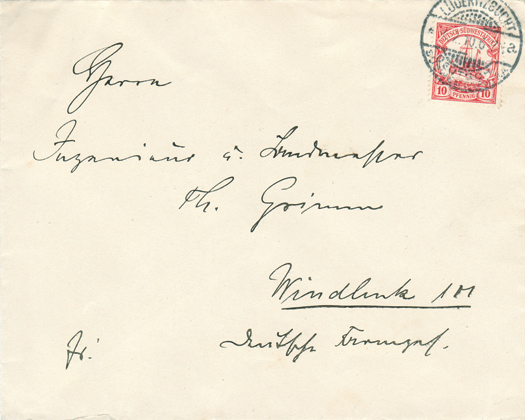 LÜDERITZBUCHT
a
DEUTSCH-SÜDWESTAFRIKA
10 PFENNIG 10
Herrn
Ingenieur u. Landmesser
Th. Grimm
Windhuk
Deutsche
Fr.